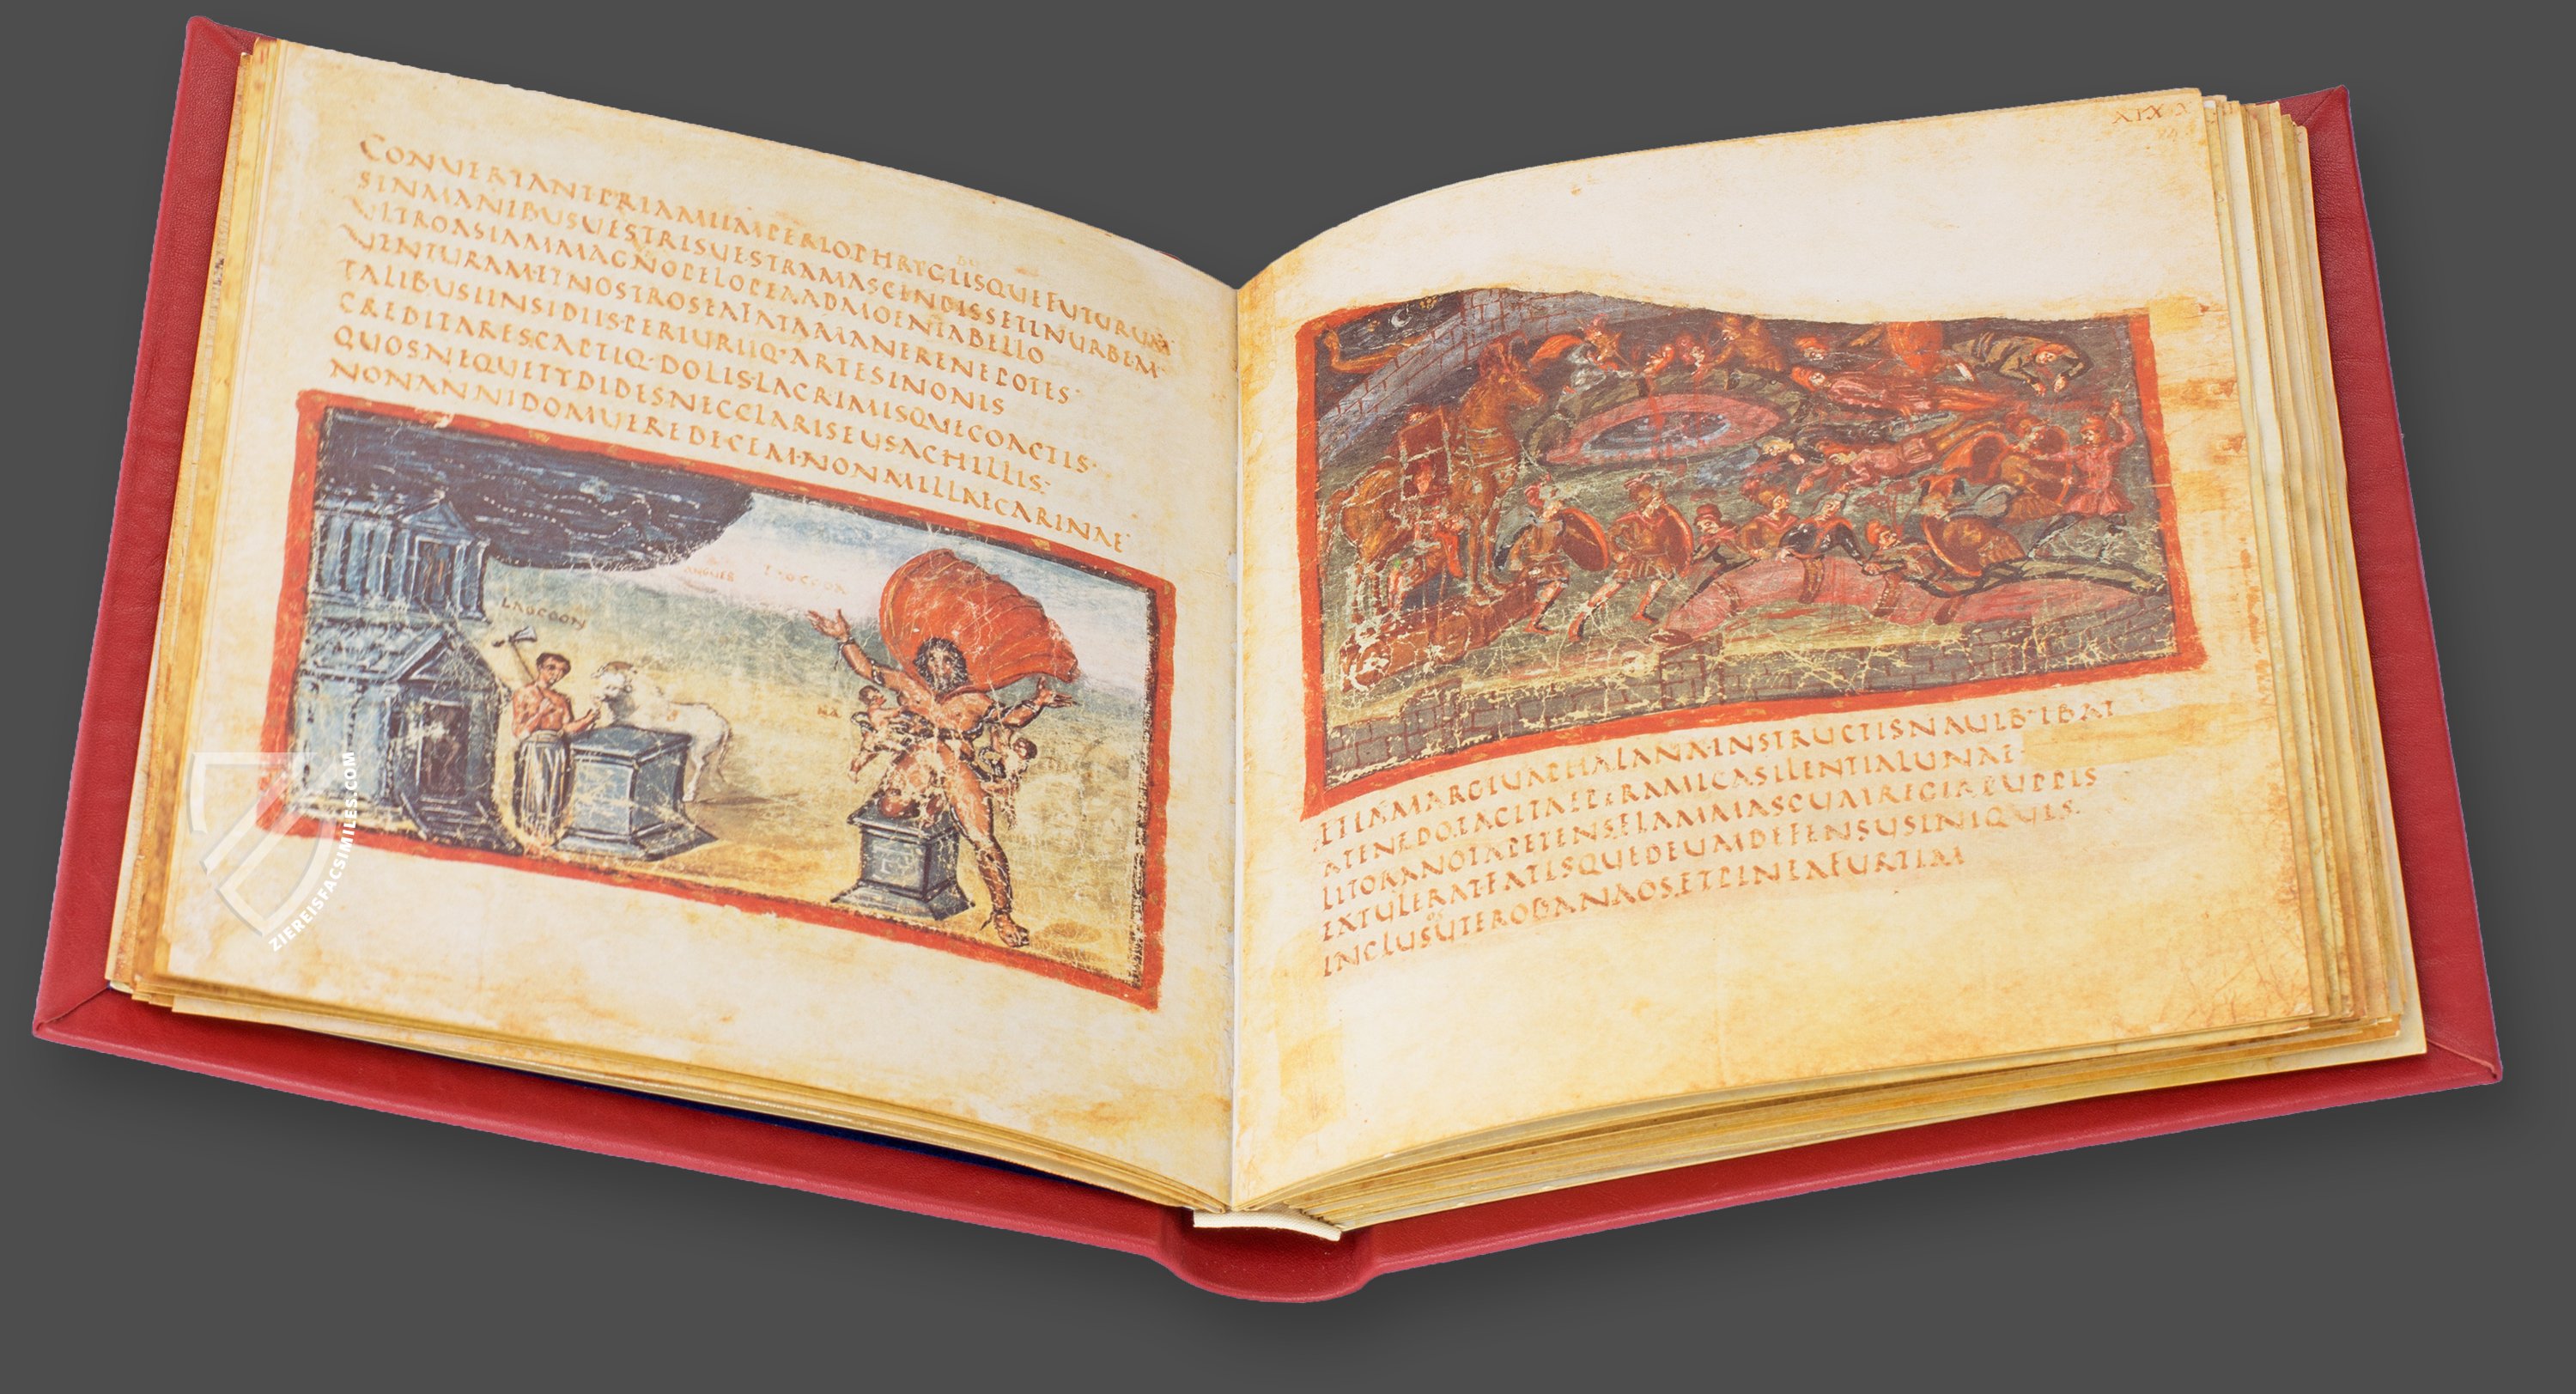 CONUERTANTPRIAMIIMPERIOPHRYGIISQUEFUTURUM
SINMANIBUSUESTRISUESTRAMASCENDISSETINURBEM·
ULTROASIAMMAGNOPELOPEAADMOENIABELLO
UENTURAMETNOSTROSEAFATAMANERENEPOTES·
TALIBUSINSIDIISPERIURIIQ·ARTESINONIS
CREDITARESCAPTIQ·DOLISLACRIMISQUECOACTIS·
QUOSNEQUETYDIDESNECLARISEUSACHILLIS·
NONANNIDOMUEREDECEM·NONMILLECARINAE·
LAOCOON
ANGUES
LAOCOON
ZIEREISFACSIMILES.COM
XIX
ETIAMARGIUAPHALANXINSTRUCTISNAUIB·IBAT
ATENEDOTACITAEPERAMICASILENTIALUNAE·
LITORANOTAPETENSFLAMMASCUMREGIAPUPPIS
EXTULERATFATISQUEDEUMDEFENSUSINIQUIS·
INCLUSOSUTERODANAOSETPINEAFURTIM